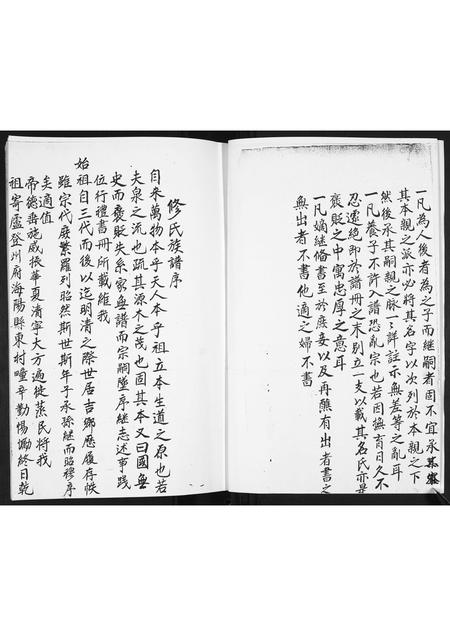 一凡為人後者為之子而繼嗣者固不宜承
其本親之派亦必將其名字以次列於本親之下
然後承其嗣親之脉一一詳註示無差等之亂耳
一凡養子不許入譜恐亂宗也若因撫育日久不
忍遽絕即於譜冊之末別立一支以載其名氏亦是
褒貶之中寓忠厚之意耳
一凡嫡繼俻書至於庶妾以及再醮有出者書之
無出者不書他適之婦不書
修氏族譜序
自来萬物本乎天人本乎祖立本生道之原也若
夫泉之流也疏其源木之茂也固其本又曰國無
史而褒貶失系家無譜而宗嗣墮序繼志述事踐
位行禮書冊所載維我
始祖自三代而後以迄明清之際世居吉鄉歷履存帙
雖宗代䆮繁羅列昭然斯世斯年子承孫継而昭穆序
矣適值
帝德畚施威振華夏清寧大方遍徙蒸民將我
祖寄盧登州府海陽縣東村疃辛勤惕勵終日乾